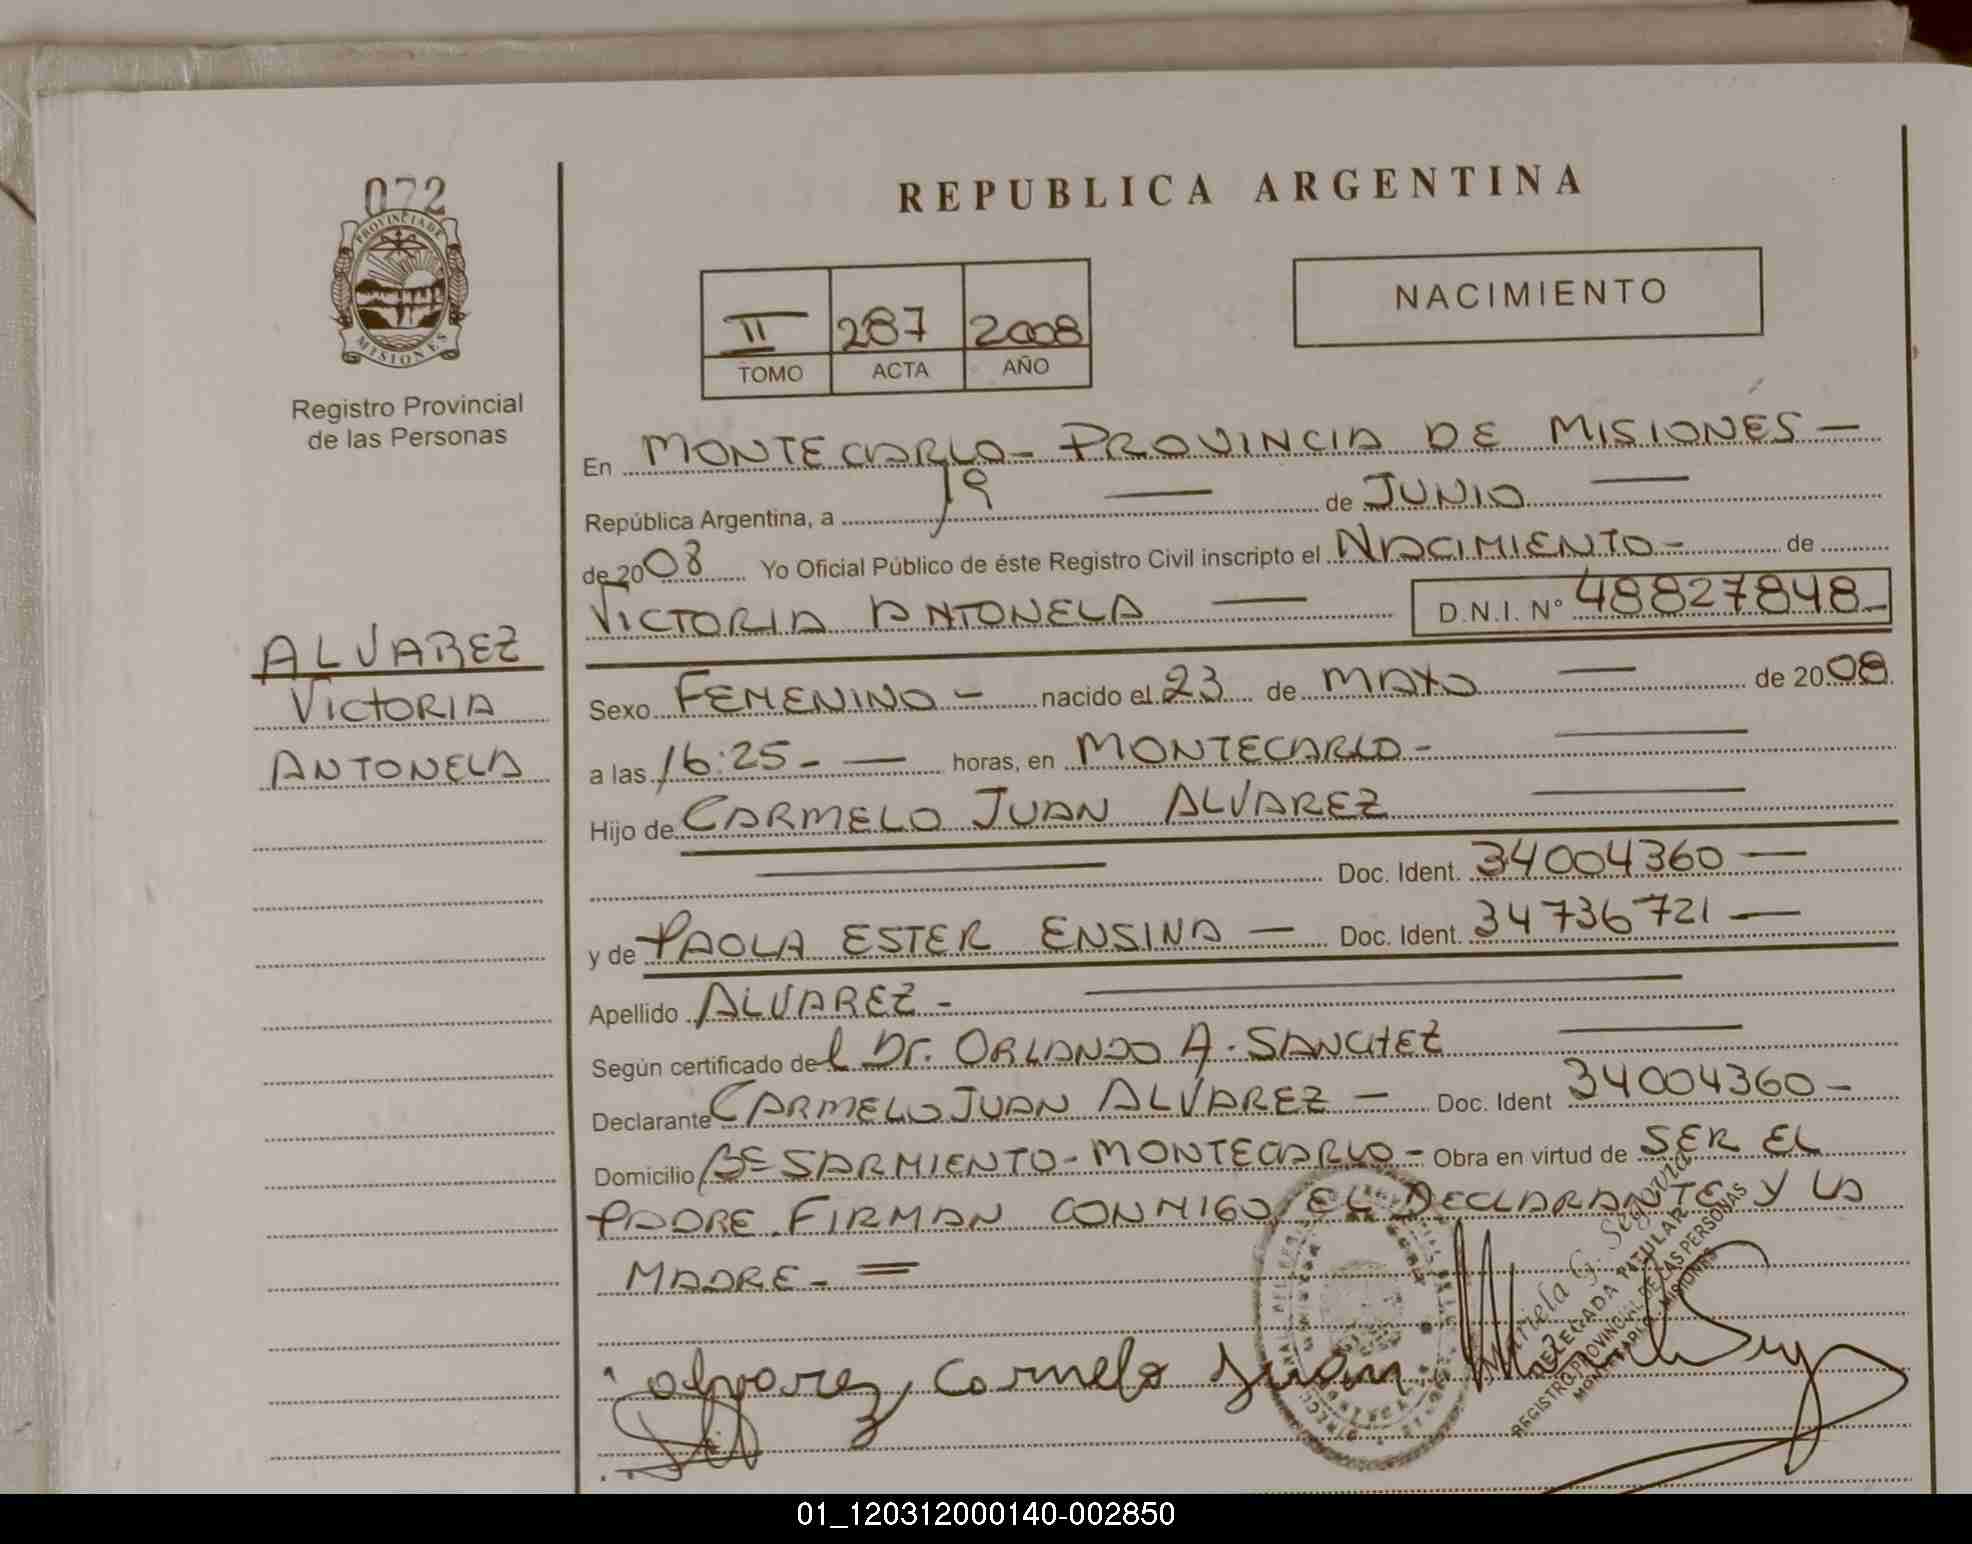 072
PROVINCIA DE
MISIONES
Registro Provincial
de las Personas
ALVAREZ
VICTORIA
ANTONELA
REPUBLICA ARGENTINA
II 287 2008
TOMO ACTA AÑO
NACIMIENTO
En MONTECARLO - PROVINCIA DE MISIONES —
República Argentina, a 19 — de JUNIO —
de 2008 Yo Oficial Público de éste Registro Civil inscripto el NACIMIENTO - de
VICTORIA ANTONELA — D.N.I. N° 48827848 -
Sexo FEMENINO - nacido el 23 de MAYO — de 2008
a las 16:25 - — horas, en MONTECARLO - —
Hijo de CARMELO JUAN ALVAREZ —
— Doc. Ident. 34004360 —
y de PAOLA ESTER ENSINA — Doc. Ident. 34736721 —
Apellido ALVAREZ - —
Según certificado del Dr. ORLANDO A. SANCHEZ —
Declarante CARMELO JUAN ALVAREZ — Doc. Ident 34004360 -
Domicilio Bº SARMIENTO - MONTECARLO - Obra en virtud de SER EL
PADRE. FIRMAN CONMIGO, EL DECLARANTE Y LA
MADRE - =
alvarez, Carmelo Juan.
Mariela G. Segovia
DELEGADA TITULAR
REGISTRO PROVINCIAL DE LAS PERSONAS
MONTECARLO - MISIONES
01_120312000140-002850